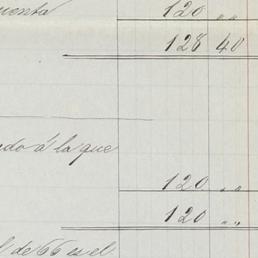 uenta 120 „
128 40
ado á la que
120 „
120 „
l de 66 es el